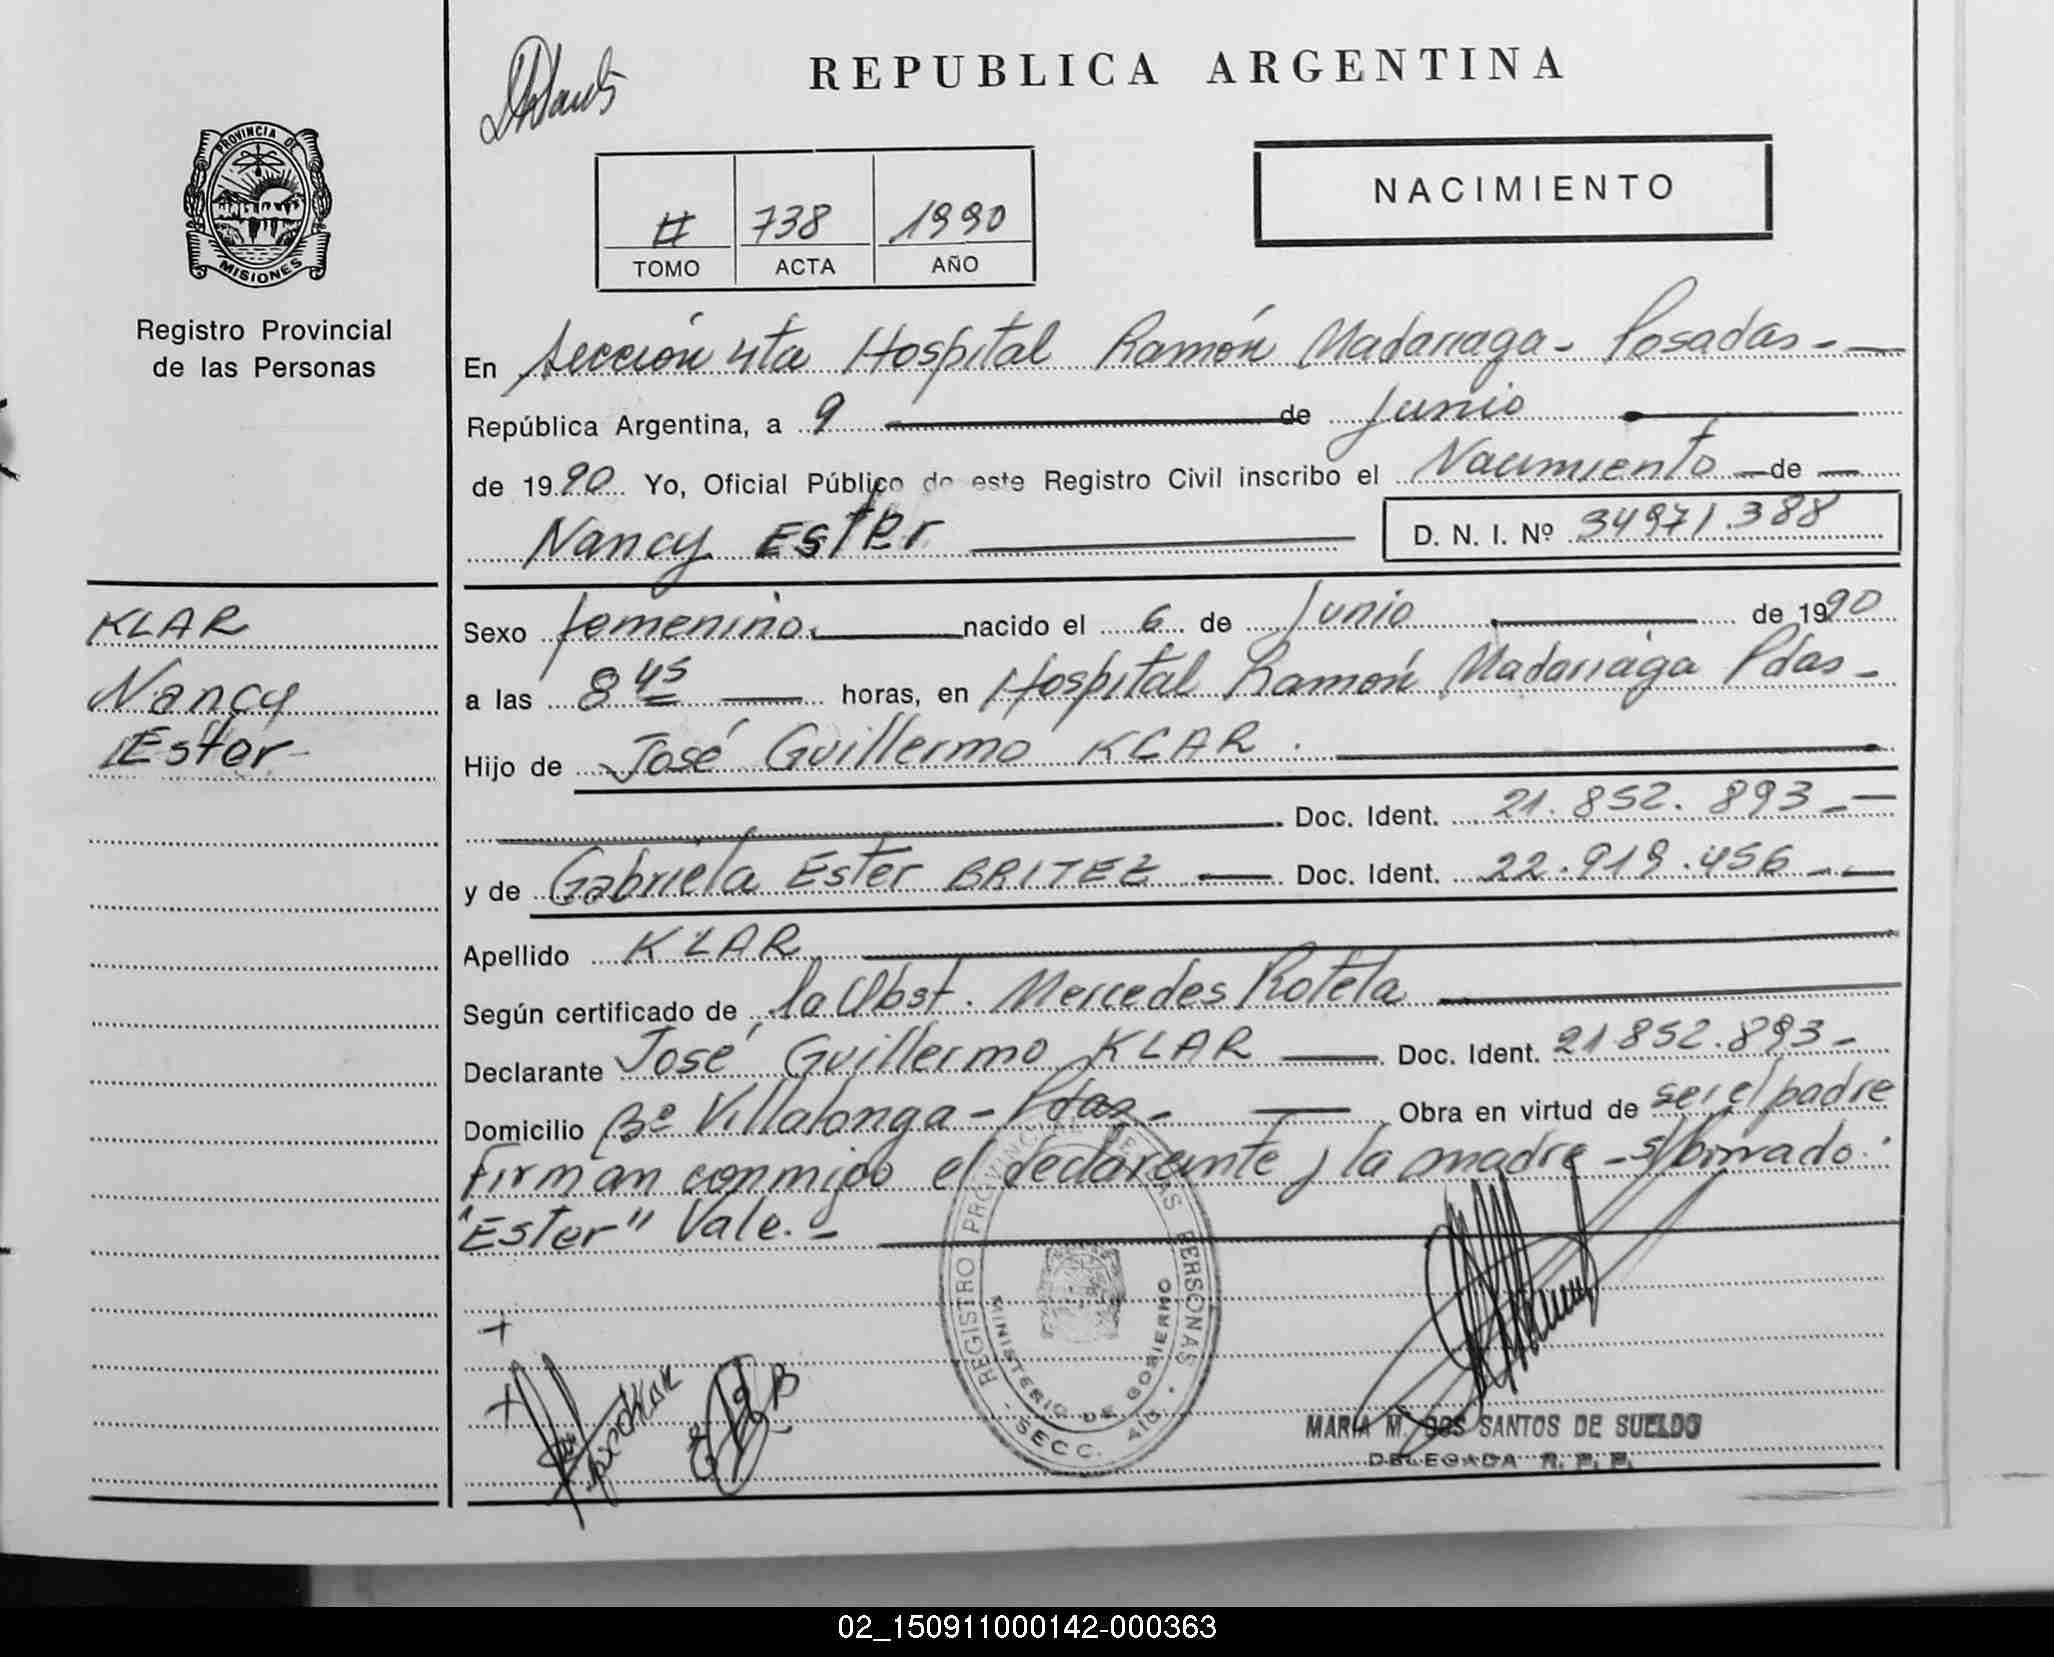 REPUBLICA ARGENTINA
PROVINCIA DE
MISIONES
Registro Provincial
de las Personas
# 738 1990
TOMO ACTA AÑO
NACIMIENTO
En Sección 4ta Hospital Ramón Madariaga - Posadas -
República Argentina, a 9 de Junio
de 1990 Yo, Oficial Público de este Registro Civil inscribo el Nacimiento de
Nancy Ester D. N. I. Nº 34971.388
KLAR
Nancy
Ester
Sexo femenino nacido el 6 de Junio de 1990
a las 8 45 horas, en Hospital Ramón Madariaga Pdas -
Hijo de José Guillermo KLAR.
Doc. Ident. 21.852.893 -
y de Gabriela Ester BRITEZ Doc. Ident. 22.919.456 -
Apellido KLAR
Según certificado de la Obst. Mercedes Rotela
Declarante José Guillermo KLAR Doc. Ident. 21852.893 -
Domicilio Bº Villalonga - Pdas - Obra en virtud de ser el padre
firman conmigo el declarante y la madre - s/borrado:
"Ester" Vale. -
REGISTRO PROVINCIAL DE LAS PERSONAS
MINISTERIO DE GOBIERNO
- SECC. 4ta. -
MARIA M. DOS SANTOS DE SUELDO
DELEGADA R. P. P.
02_150911000142-000363